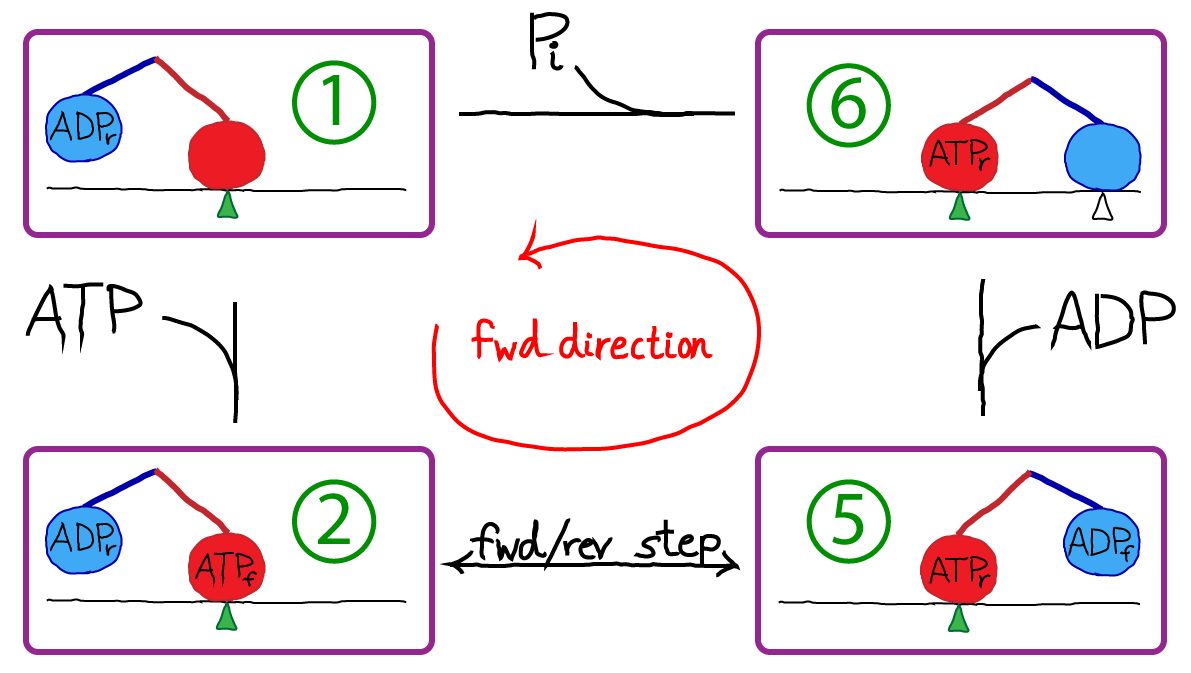 Pi
ADPr
1
6
ATPr
ATP
fwd direction
ADP
ADPr
ATPf
2
fwd/rev step
5
ATPr
ADPf